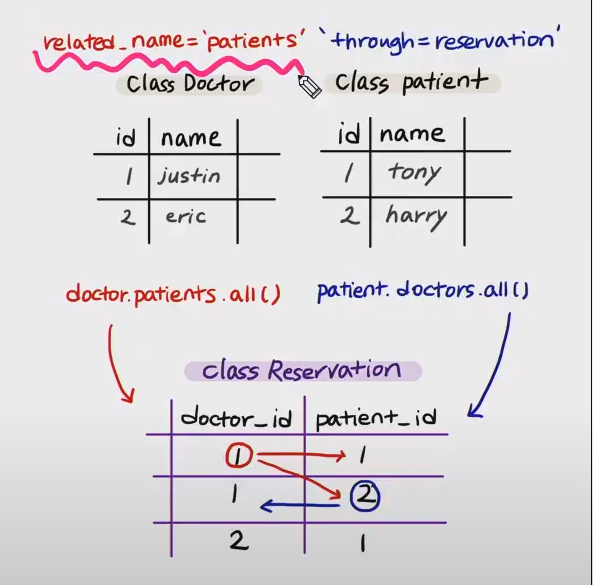 related_name='patients' `through=reservation'
class Doctor
class patient
id name
1 justin
2 eric
id name
1 tony
2 harry
doctor.patients.all()
patient.doctors.all()
class Reservation
doctor_id patient_id
1 1
1 2
2 1